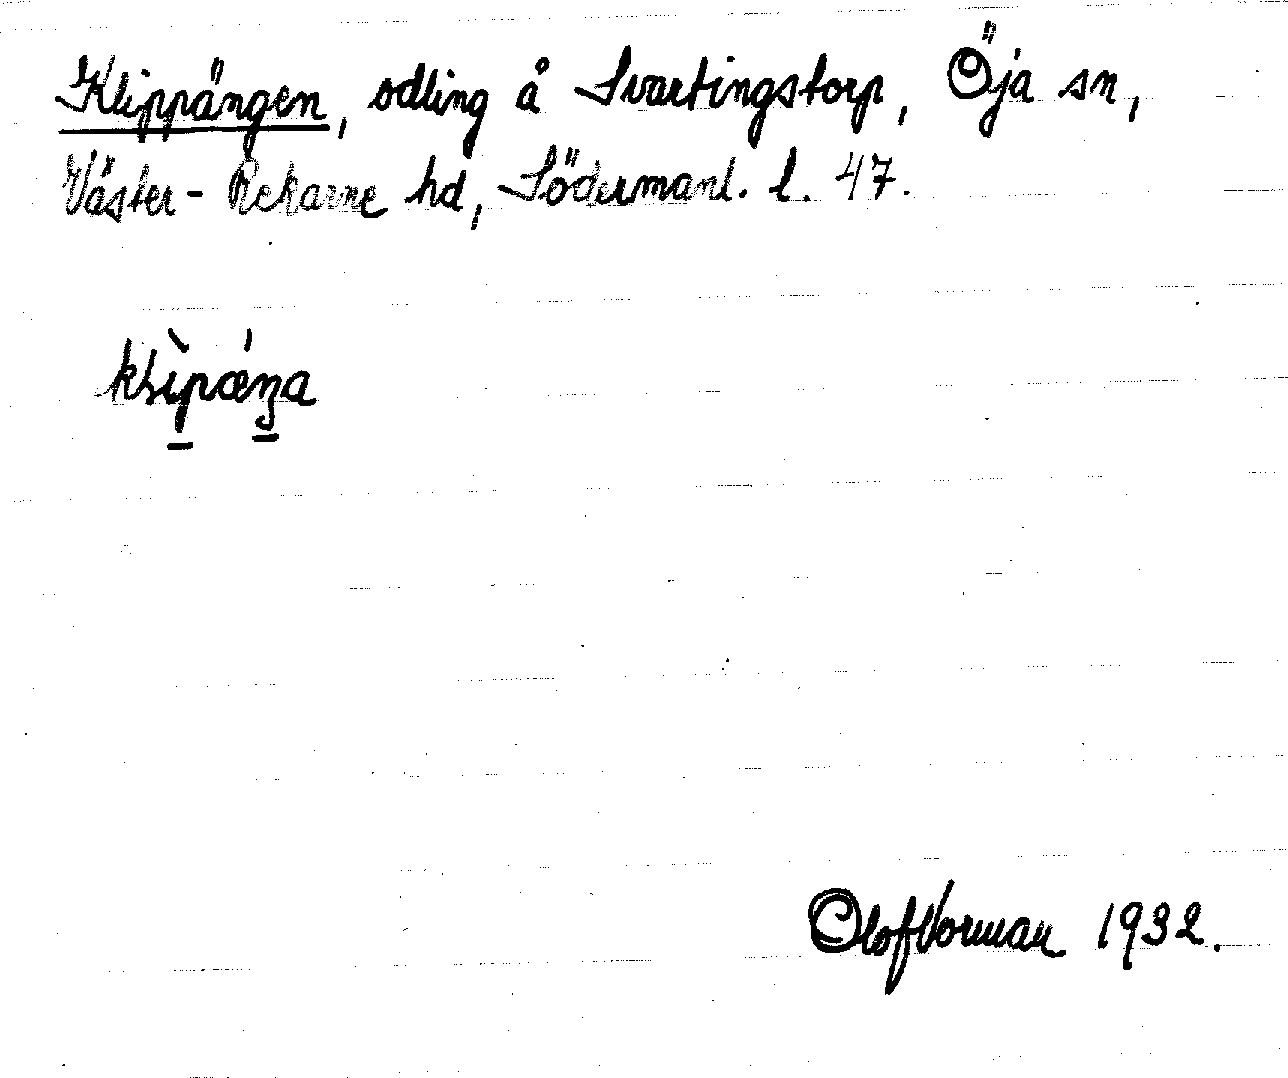 Klippängen, odling å Svartingstorp, Öja sn,
Väster-Rekarne hd, Södermanl. l. 47.
klìpǽŋa
Olof Vorman 1932.